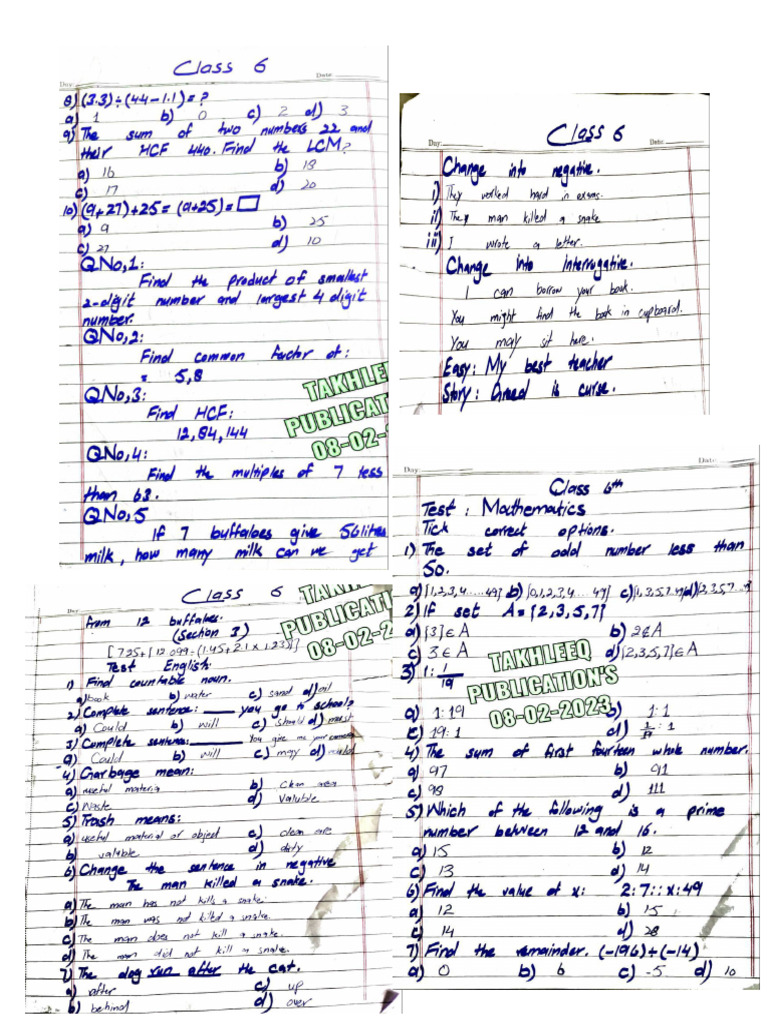 Class 6
Day: Date:
8) (3.3) ÷ (44-1.1) = ?
a) 1 b) 0 c) 2 d) 3
9) The sum of two numbers 22 and
their HCF 440. Find the LCM?
a) 16 b) 18
c) 17 d) 20
10) (9+27)+25 = (9+25) = □
a) 9 b) 25
c) 27 d) 10
QNo,1:
Find the product of smallest
2-digit number and largest 4 digit
number.
QNo,2:
Find common factor of:
= 5,8
QNo,3:
Find HCF:
12,84,144
QNo,4:
Find the multiples of 7 less
than 63.
QNo,5
If 7 buffaloes give 56 lites
milk, how many milk can we get
TAKHLEE
PUBLICAT
08-02-2
Class 6
Day: Date:
from 12 buffaloes.
(Section 3)
[7.25+{12.099÷(1.45+2.1x1.23)}]
Test English.
1) Find countable noun.
a) book b) water c) sand d) oil
2) Complete sentence: ____ you go to school?
a) Could b) will c) should d) must
3) Complete sentence: ____ You give me your
a) Could b) will c) may d)
4) Garbage mean:
a) useful material b) clean area
c) Waste d) Valuble
5) Trash means:
a) useful material or object c) clean are
b) valuble d) dirty
6) Change the sentence in negative
The man killed a snake.
a) The man has not kills a snake.
b) The man was not killed a snake.
c) The man does not kill a snake.
d) The man did not kill a snake.
7) The dog run after the cat.
a) after c) up
b) behind d) over
TAKHL
PUBLICATI
08-02-2
Class 6
Day: Date:
Change into negative.
i) They worked hard in exams.
ii) The man killed a snake
iii) I wrote a letter.
Change into Interrogative.
I can borrow your book.
You might find the book in cupboard.
You may sit here.
Easy: My best teacher
Story: Greed is curse.
Day: Date:
Class 6th
Test: Mathematics
Tick correct options.
1) The set of odd number less than
50.
a) {1,2,3,4.....49} b) {0,1,2,3,4....49} c) {1,3,5,7..49} d) {2,3,5,7...}
2) If set A = {2,3,5,7}
a) {3} ∈ A b) 2 ∉ A
c) 3 ∈ A d) {2,3,5,7} ∈ A
3) 1: 1/19
a) 1:19 b) 1:1
c) 19:1 d) 1/19 : 1
4) The sum of first fourteen whole number.
a) 97 b) 91
c) 98 d) 111
5) Which of the following is a prime
number between 12 and 16.
a) 15 b) 12
c) 13 d) 14
6) Find the value of x: 2:7::x:49
a) 12 b) 15
c) 14 d) 28
7) Find the remainder. (-196)÷(-14)
a) 0 b) 6 c) -5 d) 10
TAKHLEEQ
PUBLICATION'S
08-02-2023